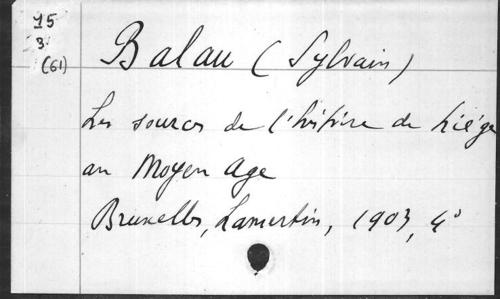 15
3
(61)
Balau (Sylvain)
Les sources de l'histoire de Liége
au Moyen Age
Bruxelles, Lamertin, 1903, 4°